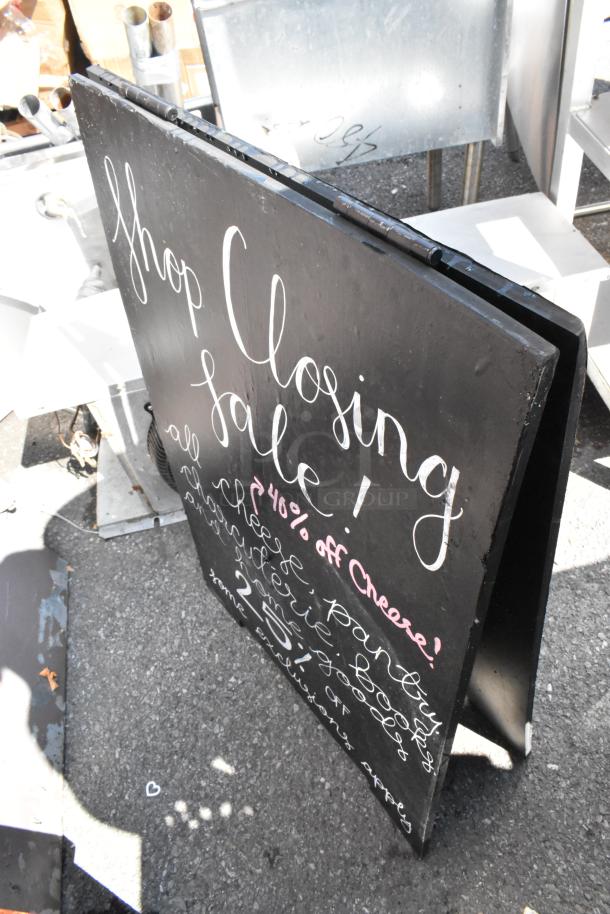 Shop Closing
Sale!
→ 40% off Cheese!
all cheese, pantry,
charcuterie, books
and home goods
25% off
some exclusions apply
GROUP